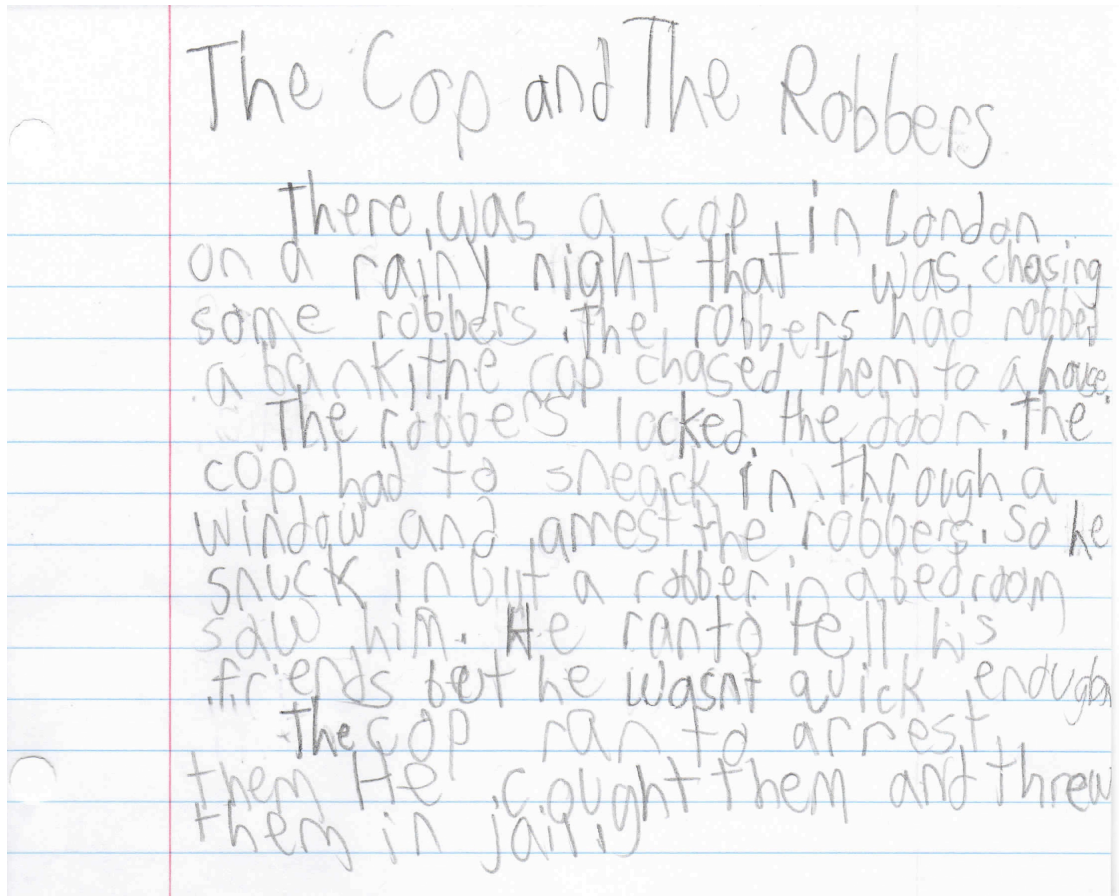 The Cop and The Robbers
There was a cop in London
on a rainy night that was chasing
some robbers. The robbers had robbed
a bank, the cop chased them to a house.
The robbers locked the door. The
cop had to sneack in through a
window and arrest the robbers. So he
snuck in but a robber in a bedroom
saw him. He ran to tell his
friends but he wasnt quick enough
The cop ran to arrest
them He cought them and threw
them in jail.